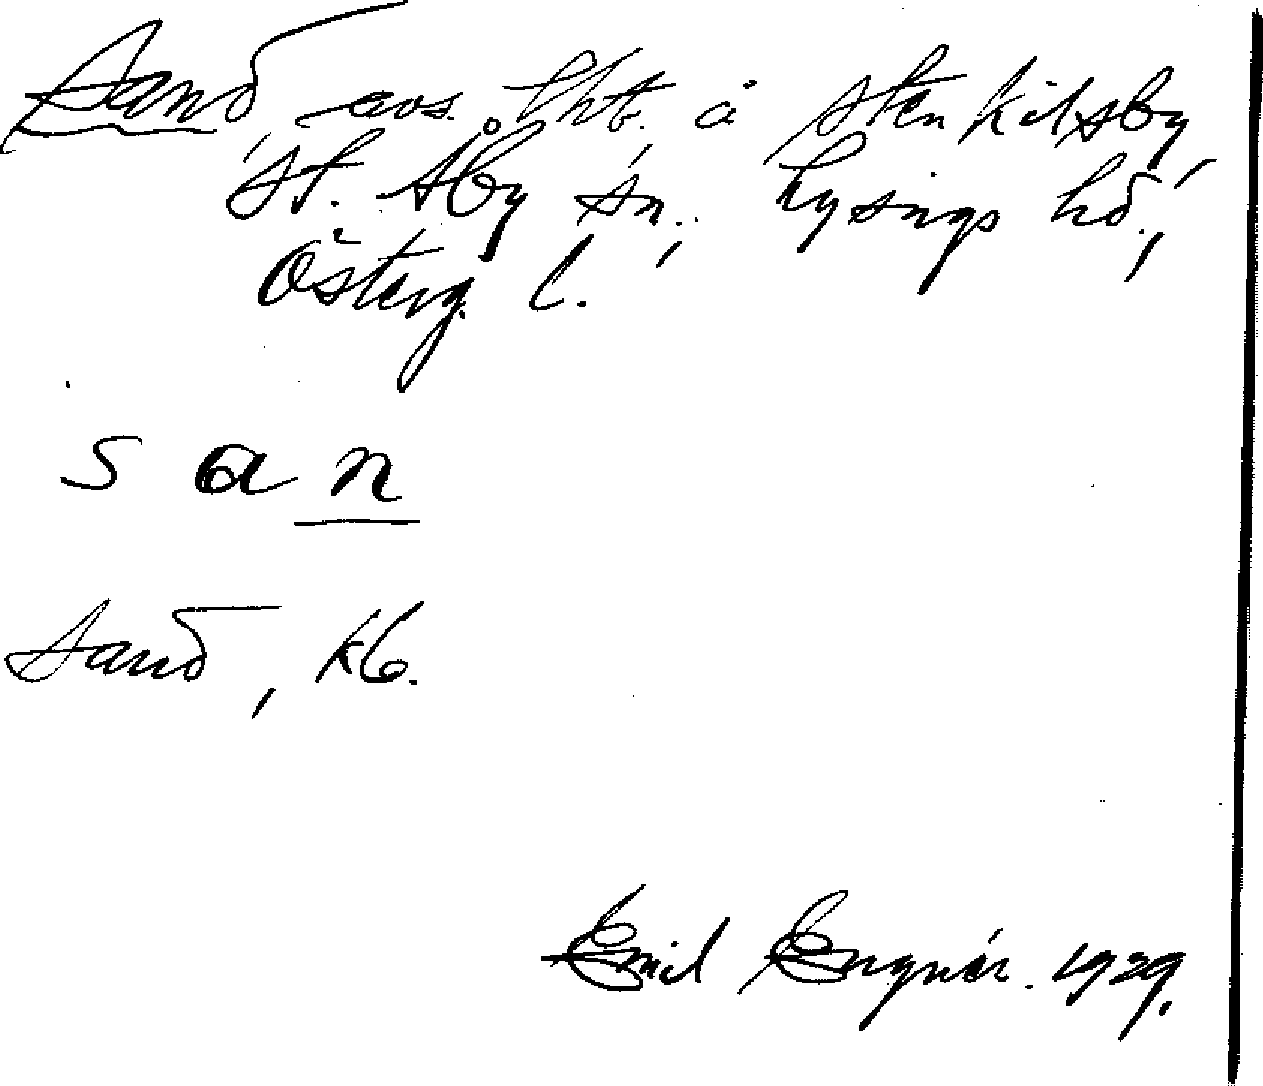 Sand, avs. lht. å Stenkilsby,
St. Åby sn., Lysings hd.,
Österg. l.
san
Sand, kb.
Emil Engnér. 1929.